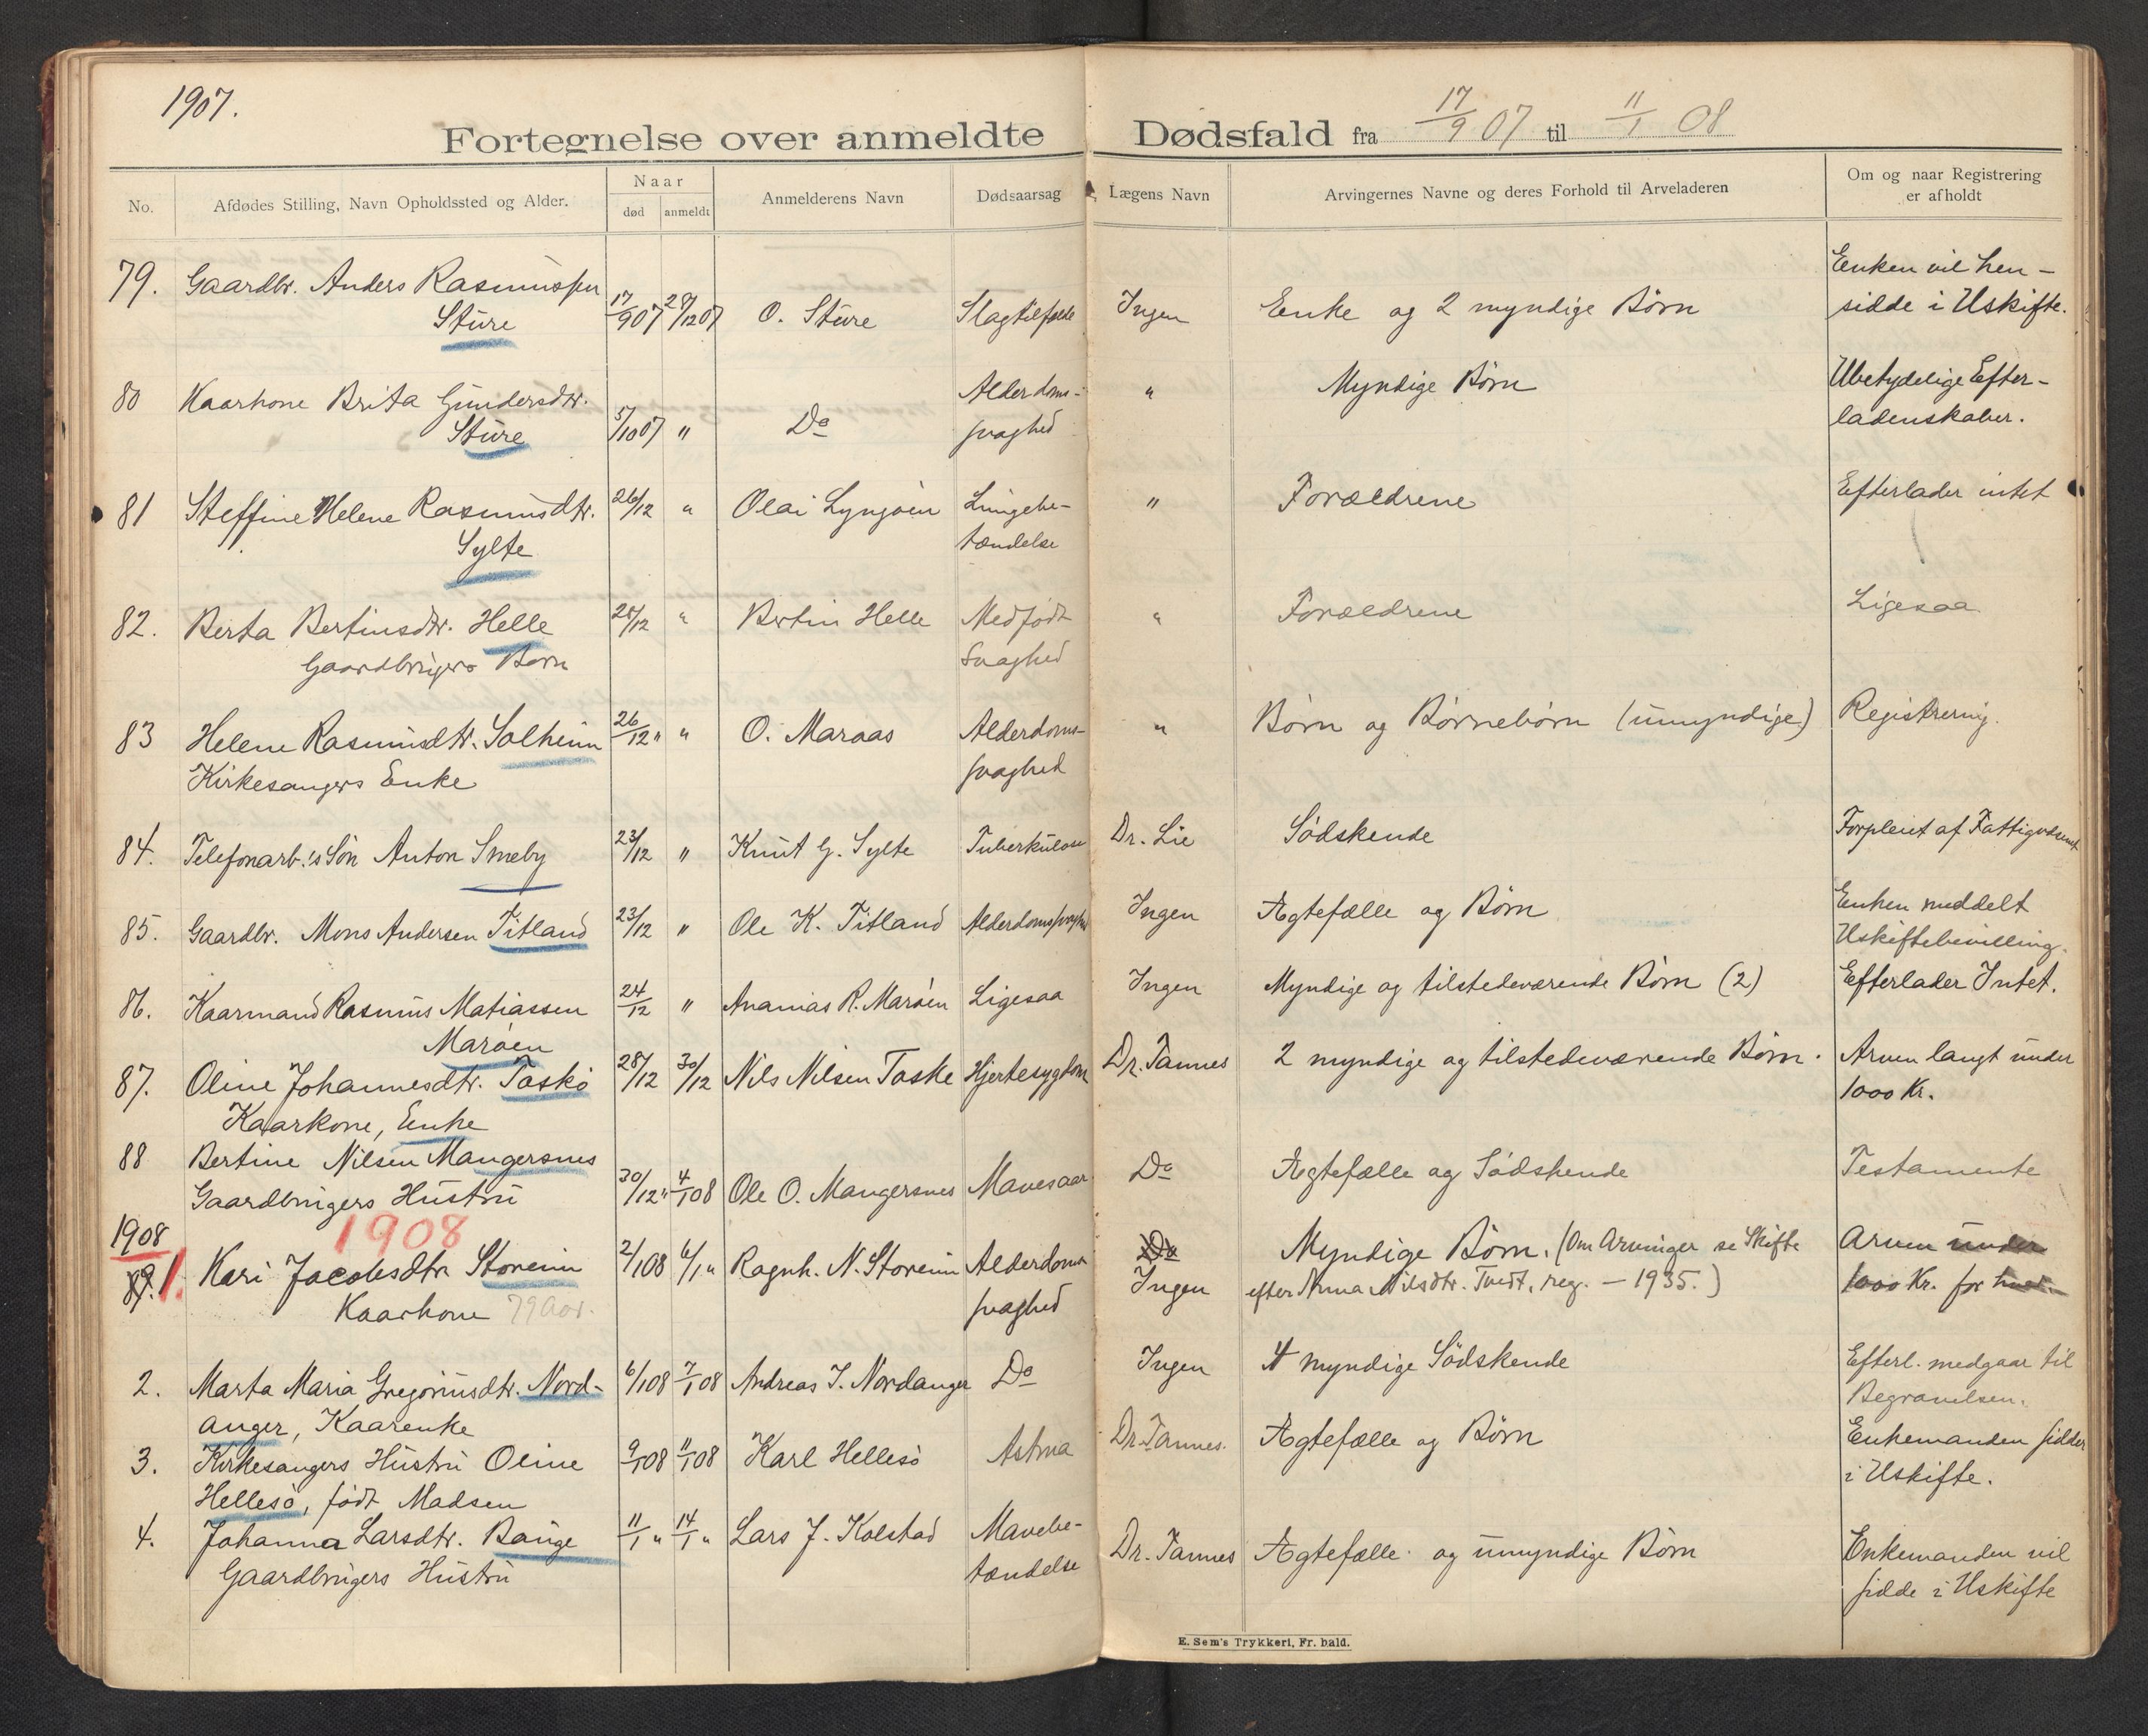 1907.
Fortegnelse over anmeldte Dødsfald fra 17/9 07 til 11/1 08
No. Afdødes Stilling, Navn Opholdssted og Alder. Naar død anmeldt Anmelderens Navn Dødsaarsag Lægens Navn Arvingernes Navne og deres Forhold til Arveladeren Om og naar Registrering er afholdt
79. Gaardbr. Anders Rasmussen
Sture
17/9 07 28/12 07 O. Sture Slagtilfælde Ingen Enke og 2 myndige Børn
Enken vil hen-
sidde i Uskifte.
80 Kaarkone Brita Gundersdtr.
Sture
5/10 07 " Do
Alderdoms-
svaghed
" Myndige Børn
Ubetydelige Efter-
ladenskaber.
81 Steffine Helene Rasmusdtr.
Sylte
26/12 " Olai Lyngøen
Lungebe-
tændelse
" Forældrene Efterlader intet
82. Berta Bertinsdtr. Helle
Gaardbrugers Barn
25/12 " Bertin Helle
Medfødt
Svaghed
" Forældrene Ligesaa
83 Helene Rasmusdtr. Solheim
Kirkesangers Enke
26/12 " " O. Maraas
Alderdoms-
svaghed
" Børn og Børnebørn (umyndige) Registrering.
84. Telefonarb.'s Søn Anton Smeby 23/12 " Knut G. Sylte Tuberkulose Dr. Lie Sødskende Forpleiet af Fattigvæsenet
85. Gaardbr. Mons Andersen Titland 23/12 " Ole K. Titland Alderdomssvaghed Ingen Agtefælle og Børn
Enken meddelt
Uskiftebevilling.
86. Kaarmand Rasmus Matiassen
Marøen
24/12 " Ananias R. Marøen Ligesaa Ingen Myndige og tilstedeværende Børn (2) Efterlader Intet.
87. Oline Johannesdtr. Toskø
Kaarkone, Enke
28/12 30/12 Nils Nilsen Toske Hjertesygdom Dr. Tannes 2 myndige og tilstedeværende Børn.
Arven langt under
1000 Kr.
88 Bertine Nilsen Mangersnes
Gaardbrugers Hustru
30/12 " 4/1 08 Ole O. Mangersnes Mavesaar Do Agtefælle og Sødskende Testamente
1908 1908
89. 1. Kari Jacobsdtr Storeim
Kaarkone 79 Aar.
2/1 08 6/1 " Ragnh. N. Storeim
Alderdoms
svaghed
Do
Ingen
Myndige Børn. (Om Arvinger se Skifte
efter Anna Nilsdtr. Tvedt, reg. – 1935.)
Arven under
1000 Kr. for hver.
2. Marta Maria Gregoriusdtr. Nord-
anger, Kaarenke
6/1 08 7/1 08 Andreas J. Nordanger Do Ingen 4 myndige Sødskende
Efterl. medgaar til
Begravelsen.
3. Kirkesangers Hustru Oline
Hellesø, født Madsen
9/1 08 11/1 08 Karl Hellesø Astma Dr. Tannes. Agtefælle og Børn
Enkemanden sidder
i Uskifte.
4. Johanna Larsdtr. Bauge
Gaardbrugers Hustru
11/1 " 14/1 " Lars J. Kolstad
Mavebe-
tændelse
Dr. Tannes Agtefælle og umyndige Børn
Enkemanden vil
sidde i Uskifte
E. Sem's Trykkeri, Fr. hald.